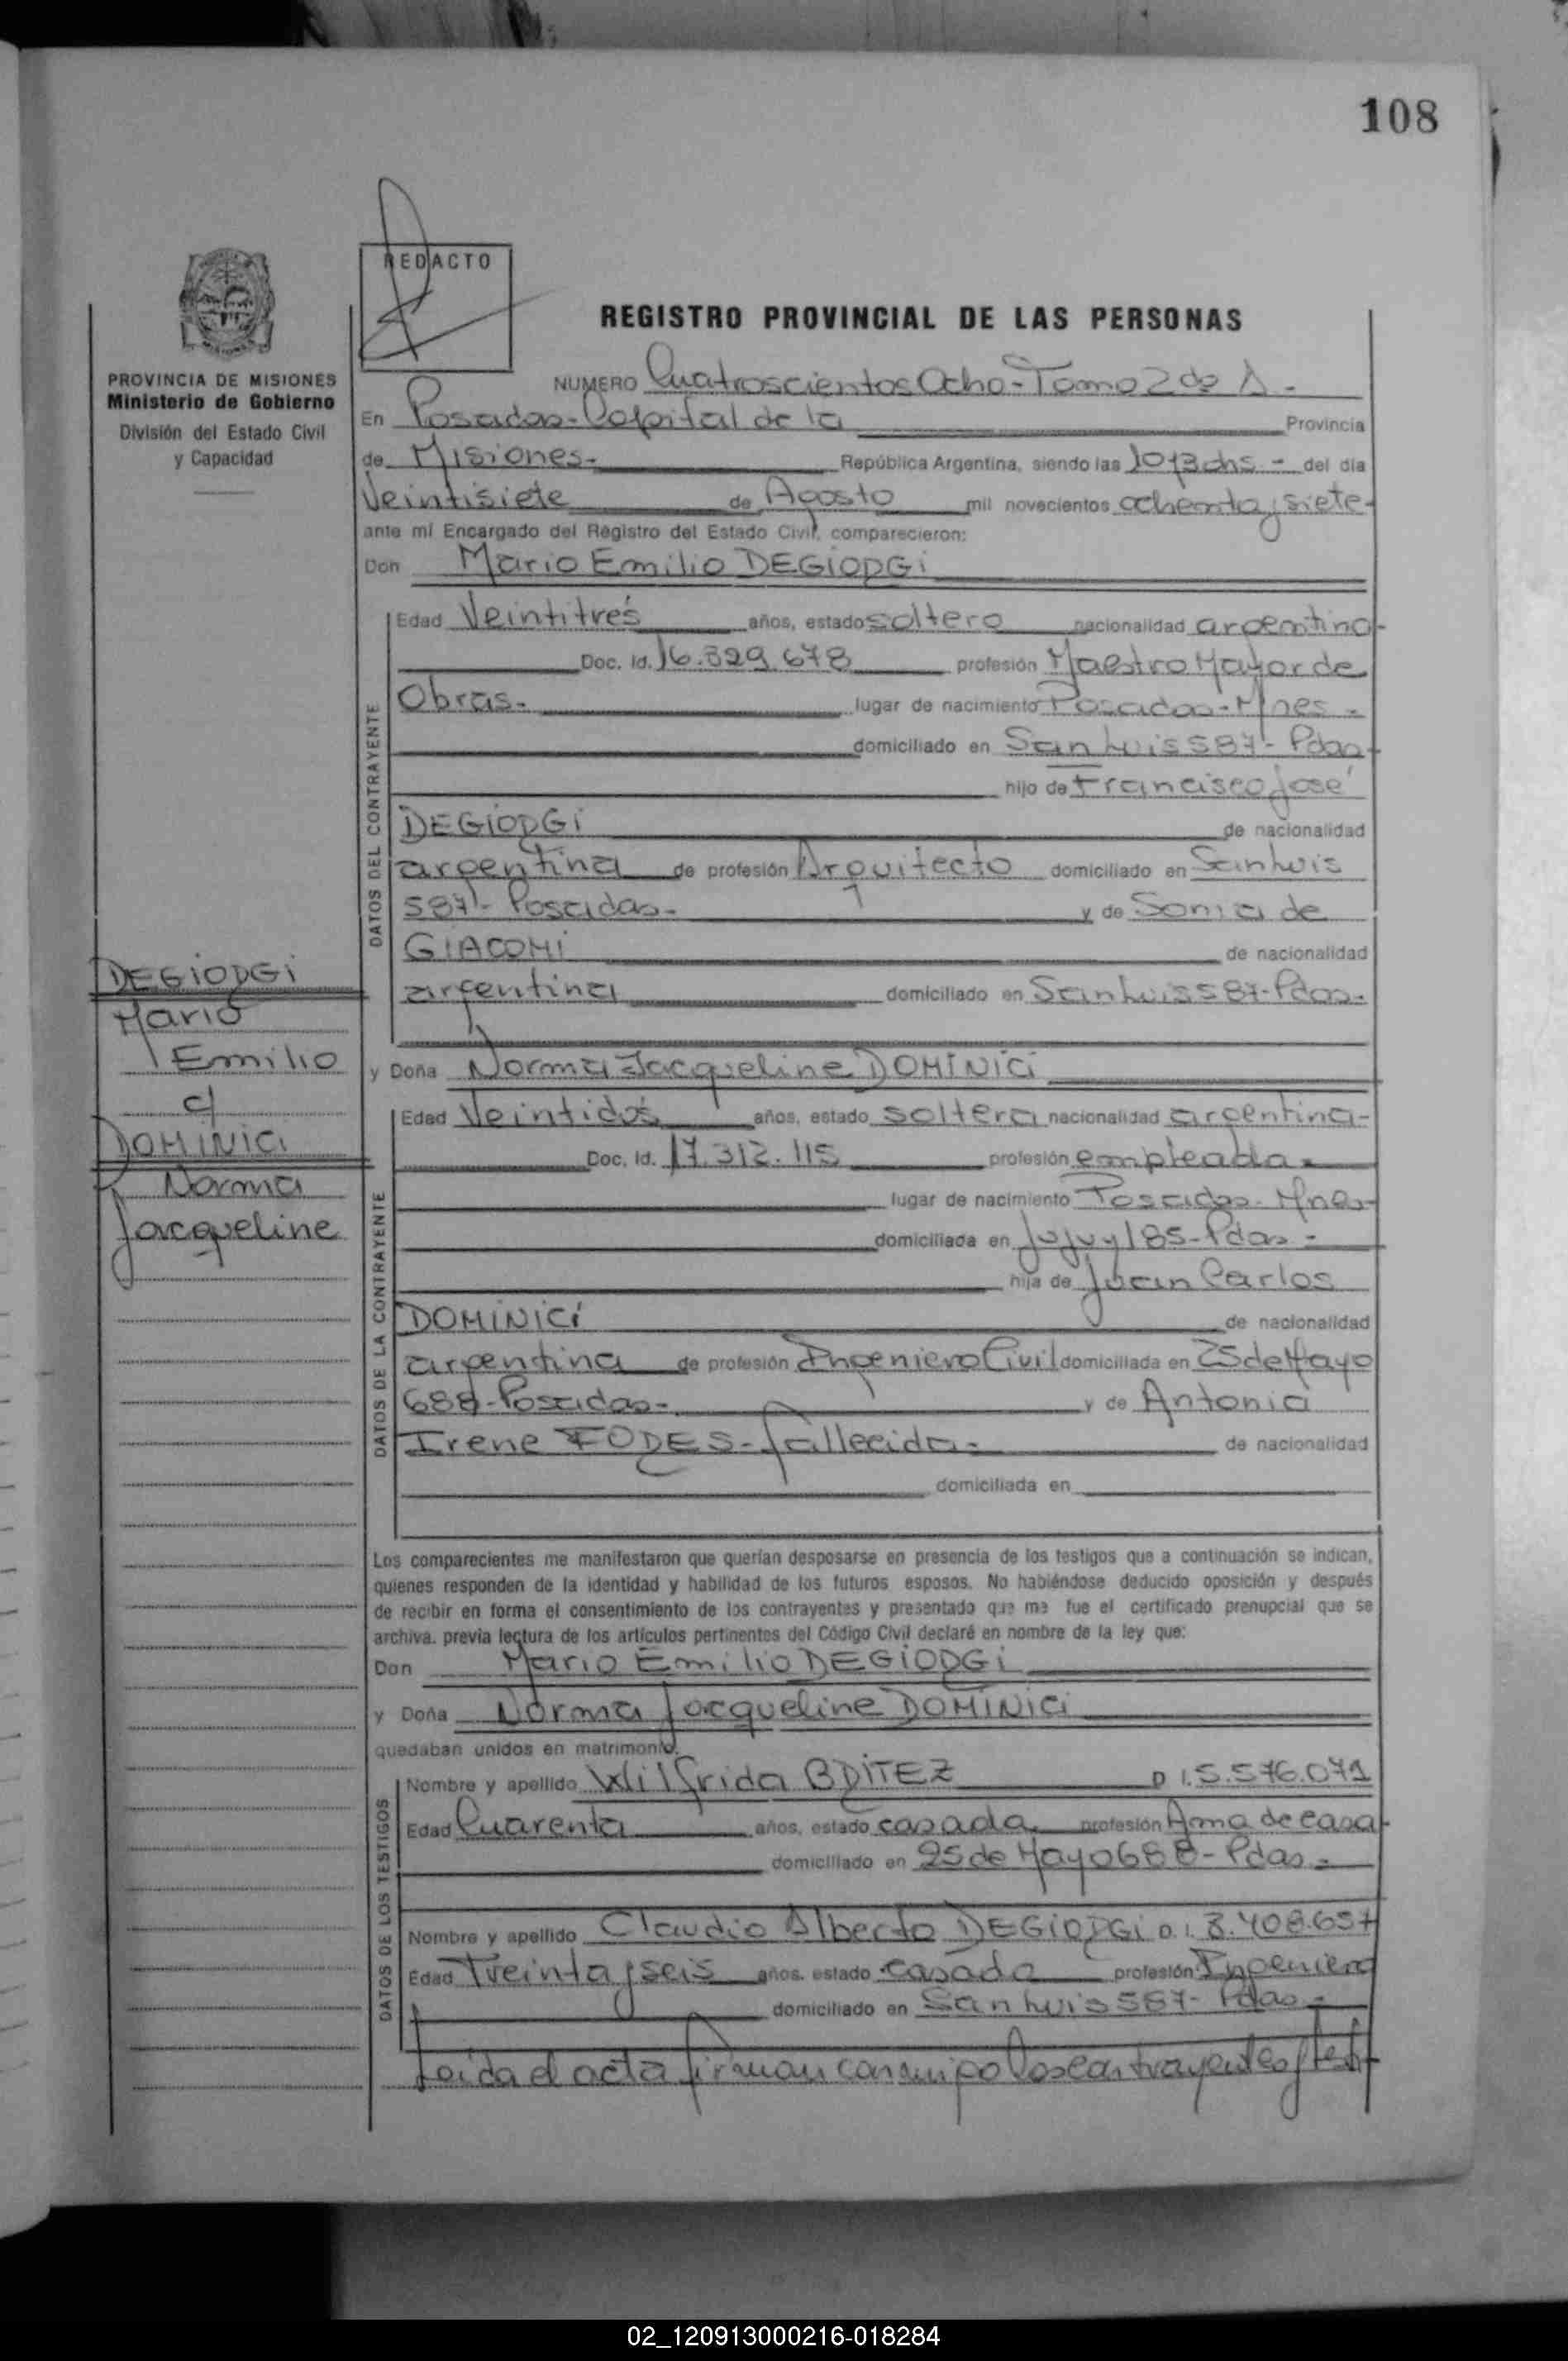 108
REDACTO
REGISTRO PROVINCIAL DE LAS PERSONAS
PROVINCIA DE MISIONES
Ministerio de Gobierno
División del Estado Civil
y Capacidad
NUMERO Cuatroscientos Ocho - Tomo 2do A -
En Posadas - Capital de la Provincia
de Misiones - República Argentina, siendo las hs - del día
Veintisiete de Agosto mil novecientos ochenta y siete -
ante mí Encargado del Registro del Estado Civil, comparecieron:
Don Mario Emilio DEGIORGI
DATOS DEL CONTRAYENTE
Edad Veintitrés años, estado soltero nacionalidad argentina -
Doc. Id. 16.829.678 profesión Maestro Mayor de
Obras - lugar de nacimiento Posadas - Mnes -
domiciliado en San Luis 587 - Pdas -
hijo de Francisco José
DEGIORGI de nacionalidad
argentina de profesión Arquitecto domiciliado en San Luis
587 - Posadas - y de Sonia de
GIACOMI de nacionalidad
argentina domiciliado en San Luis 587 - Pdas -
DEGIORGI
Mario
Emilio
c/
DOMINICI
Norma
Jacqueline
y Doña Norma Jacqueline DOMINICI
DATOS DE LA CONTRAYENTE
Edad Veintidós años, estado soltera nacionalidad argentina -
Doc. Id. 17.312.115 profesión empleada -
lugar de nacimiento Posadas - Mnes -
domiciliada en Jujuy 185 - Pdas -
hija de Juan Carlos
DOMINICI de nacionalidad
argentina de profesión Ingeniero Civil domiciliada en 25 de Mayo
688 - Posadas - y de Antonia
Irene FORES - fallecida - de nacionalidad
domiciliada en
Los comparecientes me manifestaron que querían desposarse en presencia de los testigos que a continuación se indican,
quienes responden de la identidad y habilidad de los futuros esposos. No habiéndose deducido oposición y después
de recibir en forma el consentimiento de los contrayentes y presentado que me fue el certificado prenupcial que se
archiva, previa lectura de los artículos pertinentes del Código Civil declaré en nombre de la ley que:
Don Mario Emilio DEGIORGI
y Doña Norma Jacqueline DOMINICI
quedaban unidos en matrimonio.
DATOS DE LOS TESTIGOS
Nombre y apellido Wilfrida BRITEZ D.I. 5.576.071
Edad Cuarenta años, estado casada profesión Ama de casa -
domiciliado en 25 de Mayo 688 - Pdas -
Nombre y apellido Claudio Alberto DEGIORGI D.I. 8.408.657
Edad Treinta y seis años, estado casado profesión Ingeniero
domiciliado en San Luis 587 - Pdas -
Leída el acta firman conmigo los contrayentes y testi-
02_120913000216-018284